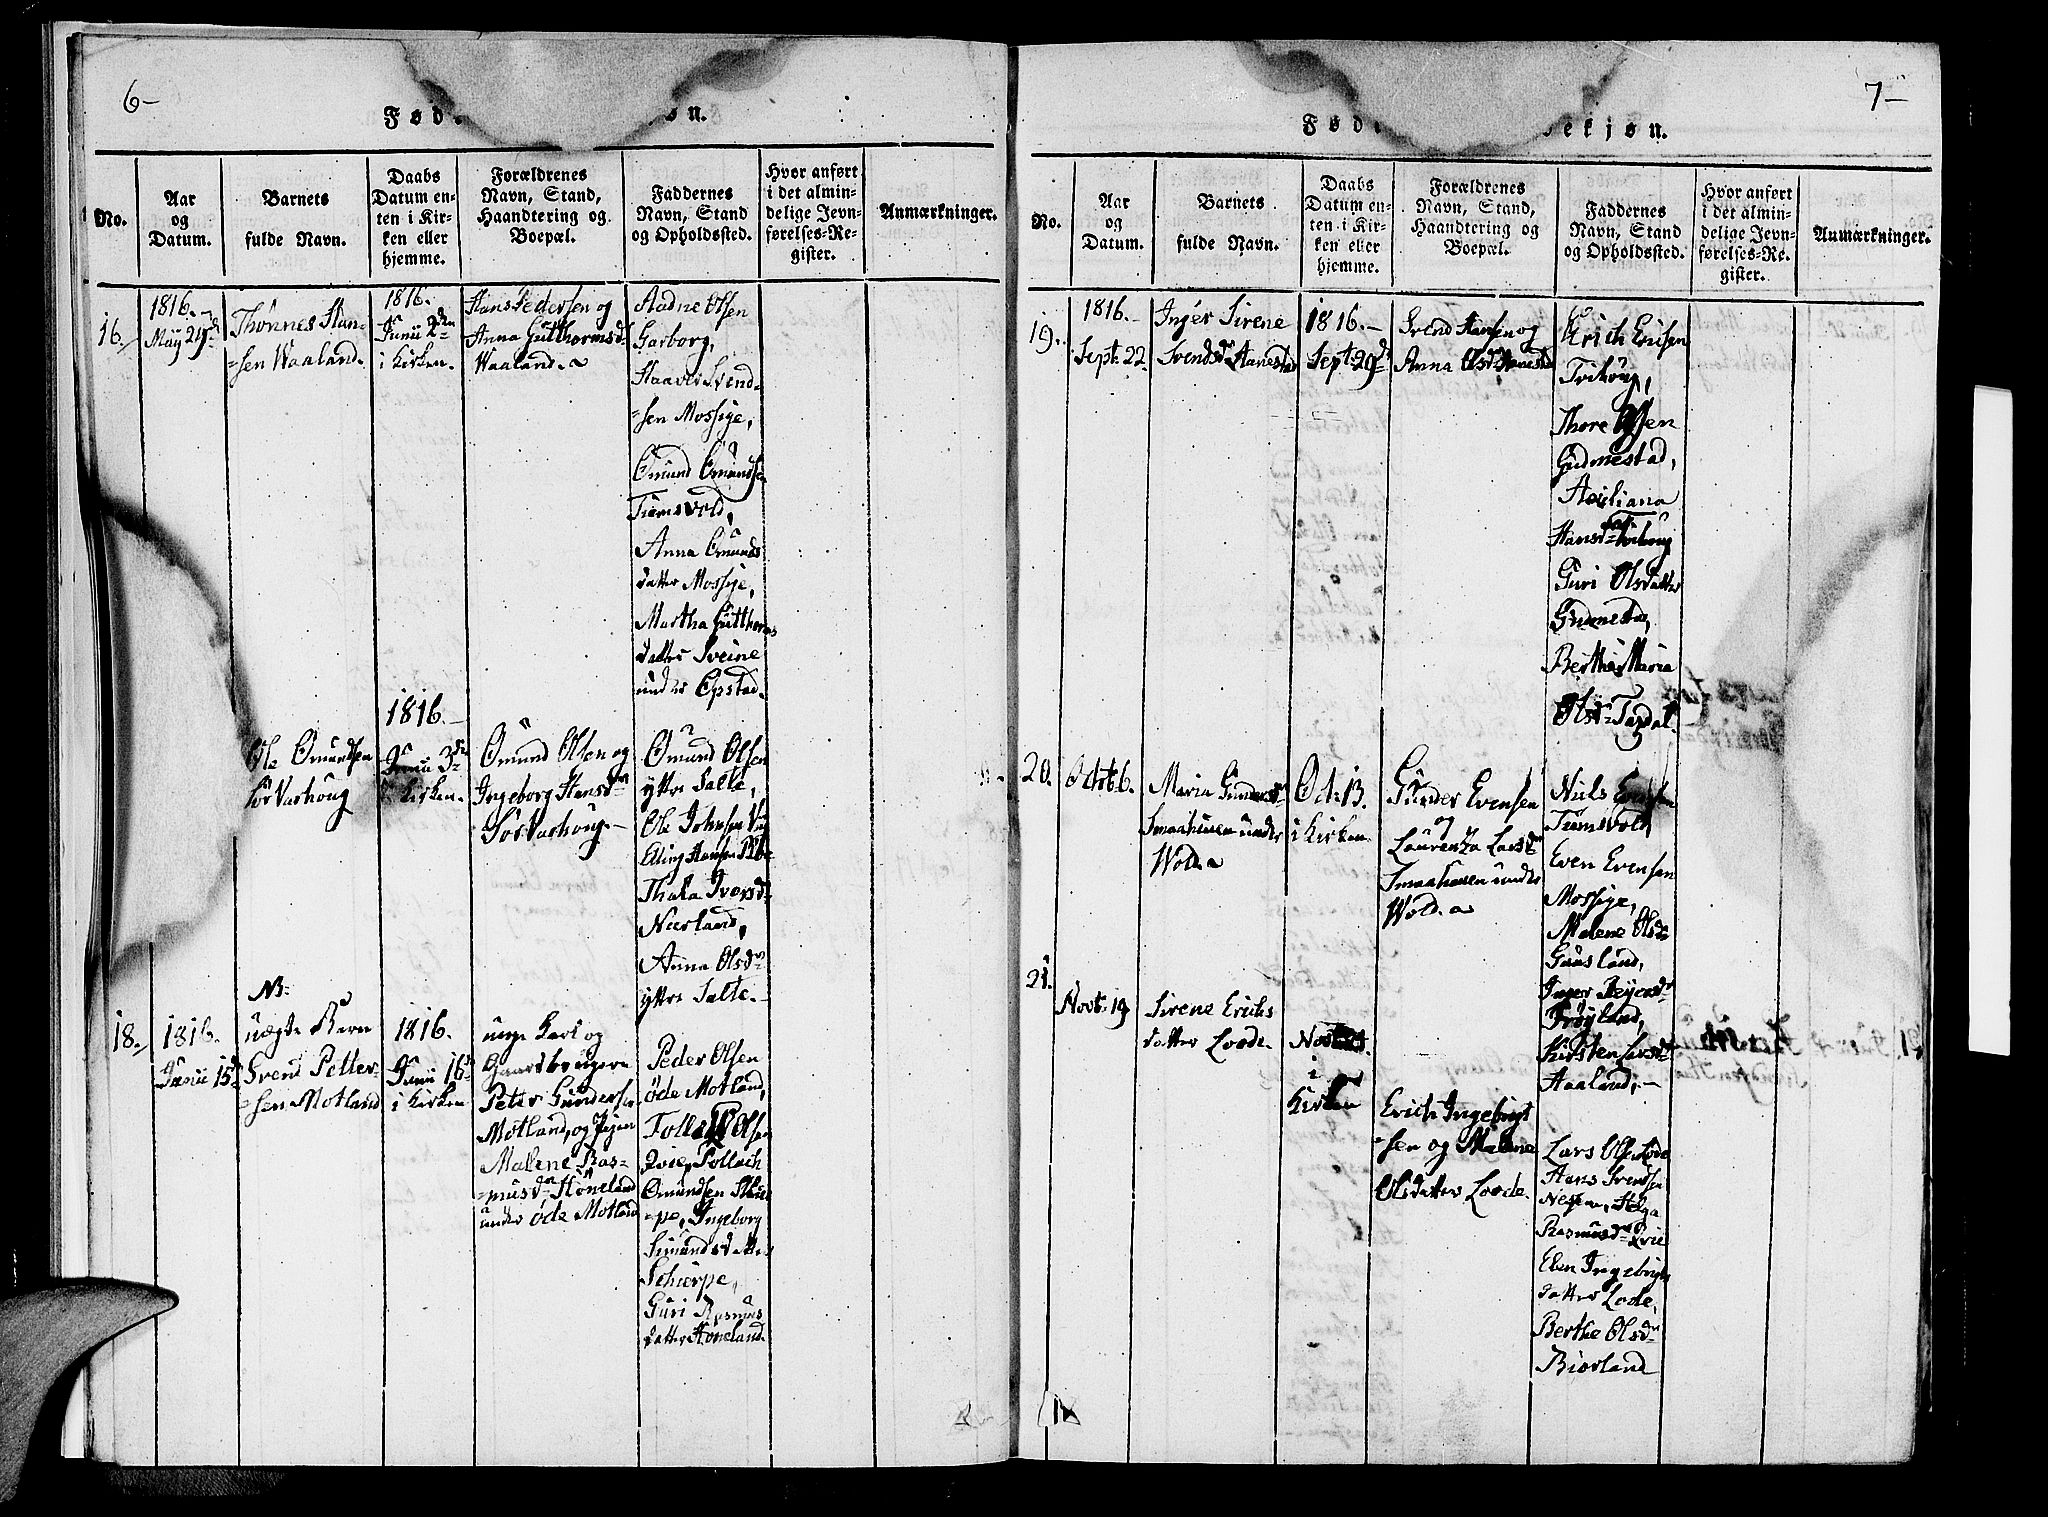 6-
Fød
øn.
No.
Aar
og
Datum.
Barnets
fulde Navn.
Daabs
Datum en-
ten i Kir-
ken eller
hjemme.
Forældrenes
Navn, Stand,
Haandtering og
Boepæl.
Faddernes
Navn, Stand
og Opholdssted.
Hvor anført
i det almin-
delige Jevn-
førelses-Re-
gister.
Anmærkninger.
16.
1816.
May 29d
Thönnes Han-
=sen Waaland.
1816.
Junii 2den
i Kirken.
Hans Pedersen og
Anna Gutthormsd
Waaland.
Aadne Olsen
Garborg,
Haaver Svend-
=sen Mossige,
Omund Omundsen
Tiemsvold,
Anna Omunds
datter Mossige,
Martha Gutthorms
datter Sveine
under Opstad.
Ole Omundsen
Sör Varhoug
1816.
Junii 3die
i Kirken.
Omund Olsen og
Ingeborg Hansdr
Sör Varhoug.
Omund Olsen
yttre Salte,
Ole Johnsen
Eling Hansen
Thala Iversd
Nærland,
Anna Olsdr
yttre Salte.
18.
1816.
Junii 15d
NB:
uægte Barn
Svend Petter-
=sen Motland
1816.
Junii 16d
i Kirken
unge Karl og
Gaardbrugere
Peter Gundersen
Motland, og Pigen
Malene Ras-
=musdr Höneland
under öde Motland
Peder Olsen
öde Motland,
Tollef Olsen
Qvie, Tollach
Omundsen Skiær
=pe, Ingeborg
Simundsdatter
Schierpe,
Guri Rasmus
datter Höneland
7-
Fødd
ekjøn.
No.
Aar
og
Datum.
Barnets
fulde Navn.
Daabs
Datum en-
ten i Kir-
ken eller
hjemme.
Forældrenes
Navn, Stand,
Haandtering og
Boepæl.
Faddernes
Navn, Stand
og Opholdssted.
Hvor anført
i det almin-
delige Jevn-
førelses-Re-
gister.
Anmærkninger.
19.
1816.
Sept: 22.
Inger Sirene
Svendsdr Aanestad
1816.
Sept: 29d
Svend Hansen og
Anna Olsdr Aanestad
Erich Erisen
Tvihoug,
Thore Olsen
Gudmestad,
Axeliana
Hansdr Tvihoug
Guri Olsdatter
Gudmestad,
Bertha Maria
Olsdr Taxdal.
20.
Octbr 6.
Maria Gundersdr
Smaahuuen under
Wold.
Oct: 13.
i Kirken
Gunder Evensen
og
Laurentza Larsdr
Smaahuuen under
Wold.
Niels Evensen
Tiemsvold,
Even Evensen
Mossige,
Malene Olsdr
Gausland,
Inger Reyersdr
Fröyland,
Kirsten Larsdr
Aaland,
21.
Novbr: 19
Sirene Erichs
datter Lode.
i
Kirken
Erich Ingebrigt
=sen og Malene
Olsdatter Lode.
Lars Olsen Lode
Hans Svendsen
Nesem, Helga
Rasmusdr Qvie
Elen Ingebrigts
datter Lode,
Berthe Olsdr
Biorland